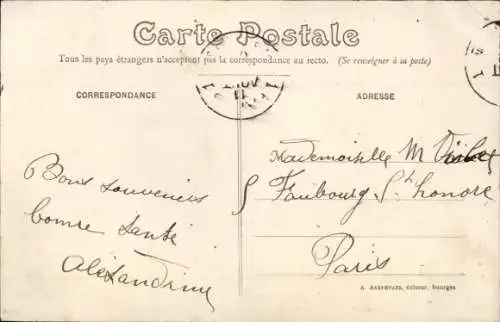 Carte Postale
Tous les pays étrangers n'acceptent pas la correspondance au recto. (Se renseigner à sa poste)
CORRESPONDANCE
ADRESSE
Mademoiselle M
Bons souvenirs
5 Faubourg St honoré
bonne santé
Alexandrine
Paris
éditeur, Bourges